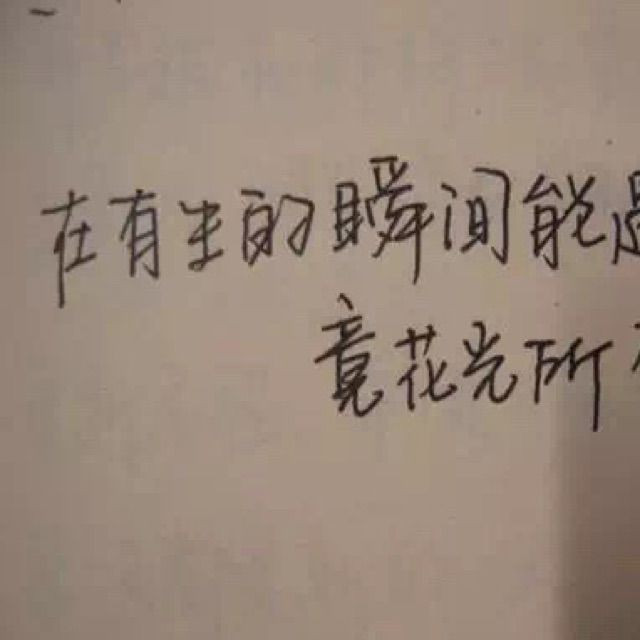 在有生的瞬间能
竟花光所